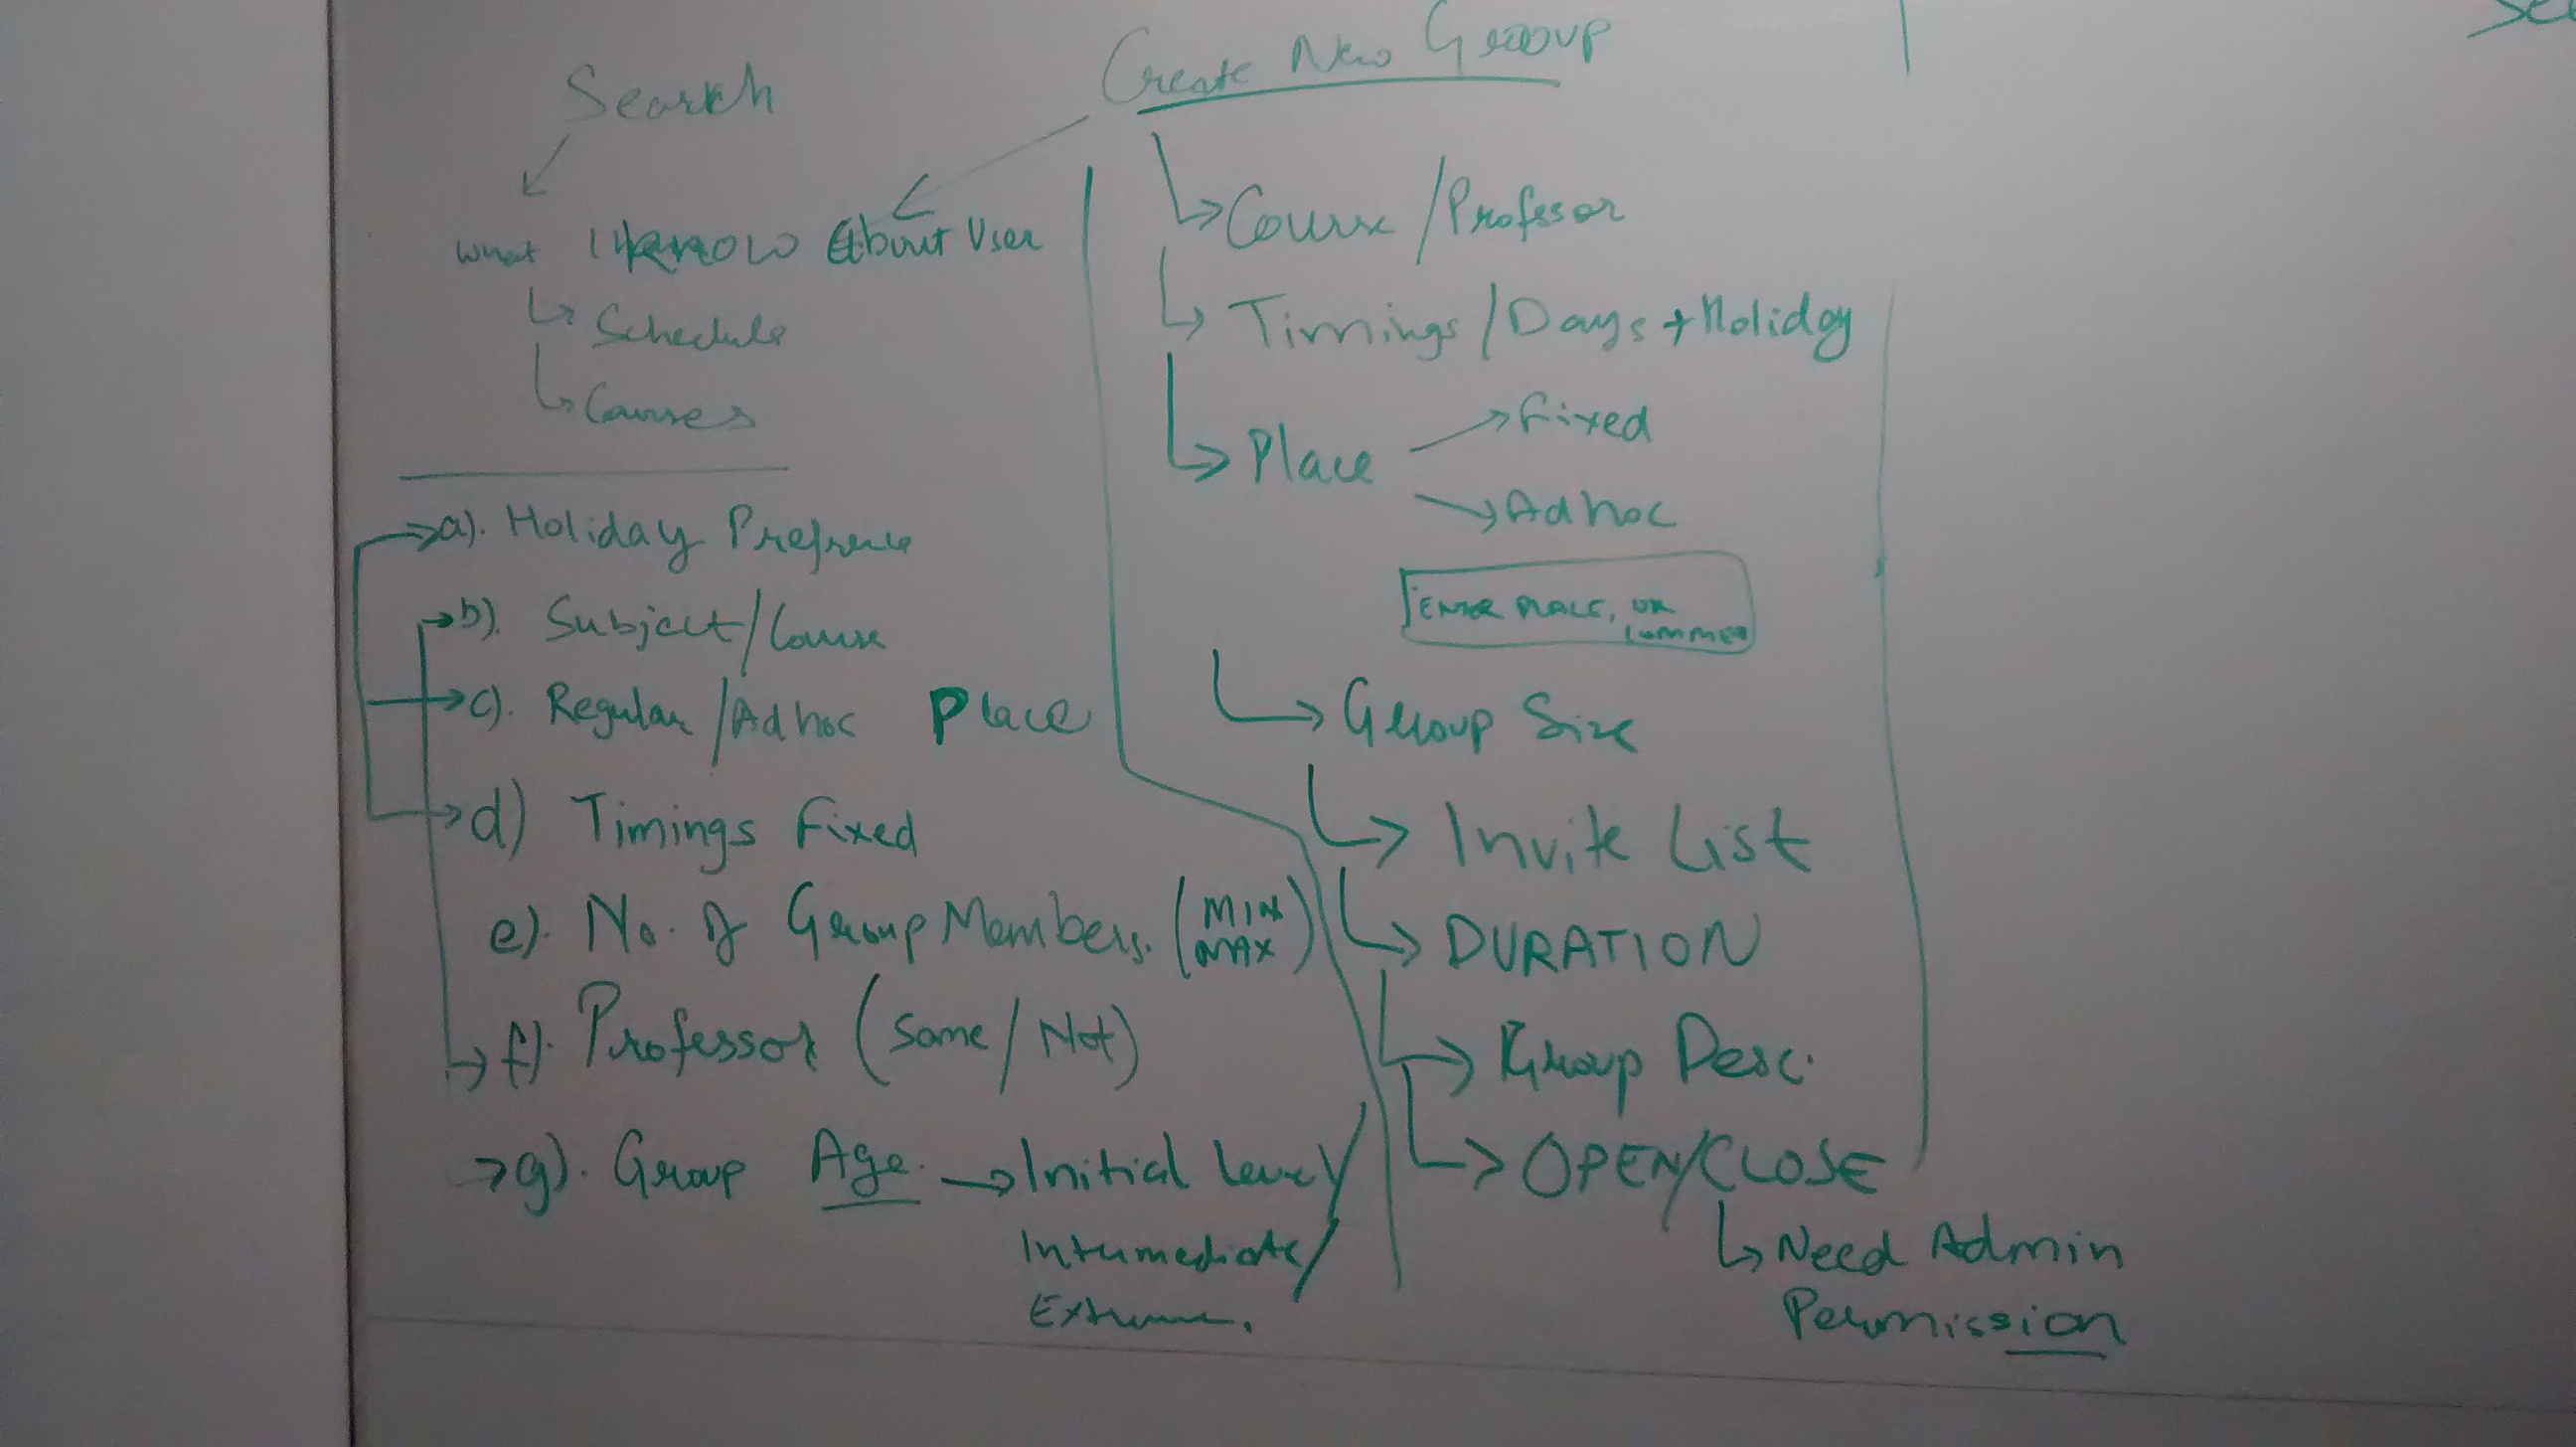 Search
What I know About User
Schedule
Courses
a). Holiday Prefrence
b). Subject/Course
c). Regular/Adhoc Place
d) Timings Fixed
e). No. of Group Members. (MIN MAX)
f). Professor (Same/Not)
g). Group Age. → Initial Level/
Intermediate/
Extreme.
Create New Group
Course/Professor
Timings/Days + Holiday
Place
Fixed
Adhoc
ENTER PLACE, OR
Group Size
Invite List
DURATION
Group Desc.
OPEN/CLOSE
Need Admin
Permission